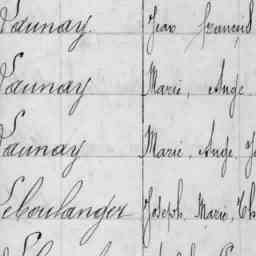 Launay. Jean François
Launay Marie, Ange
Launay Marie, Ange, J
Leboulanger Joseph, Marie, Th